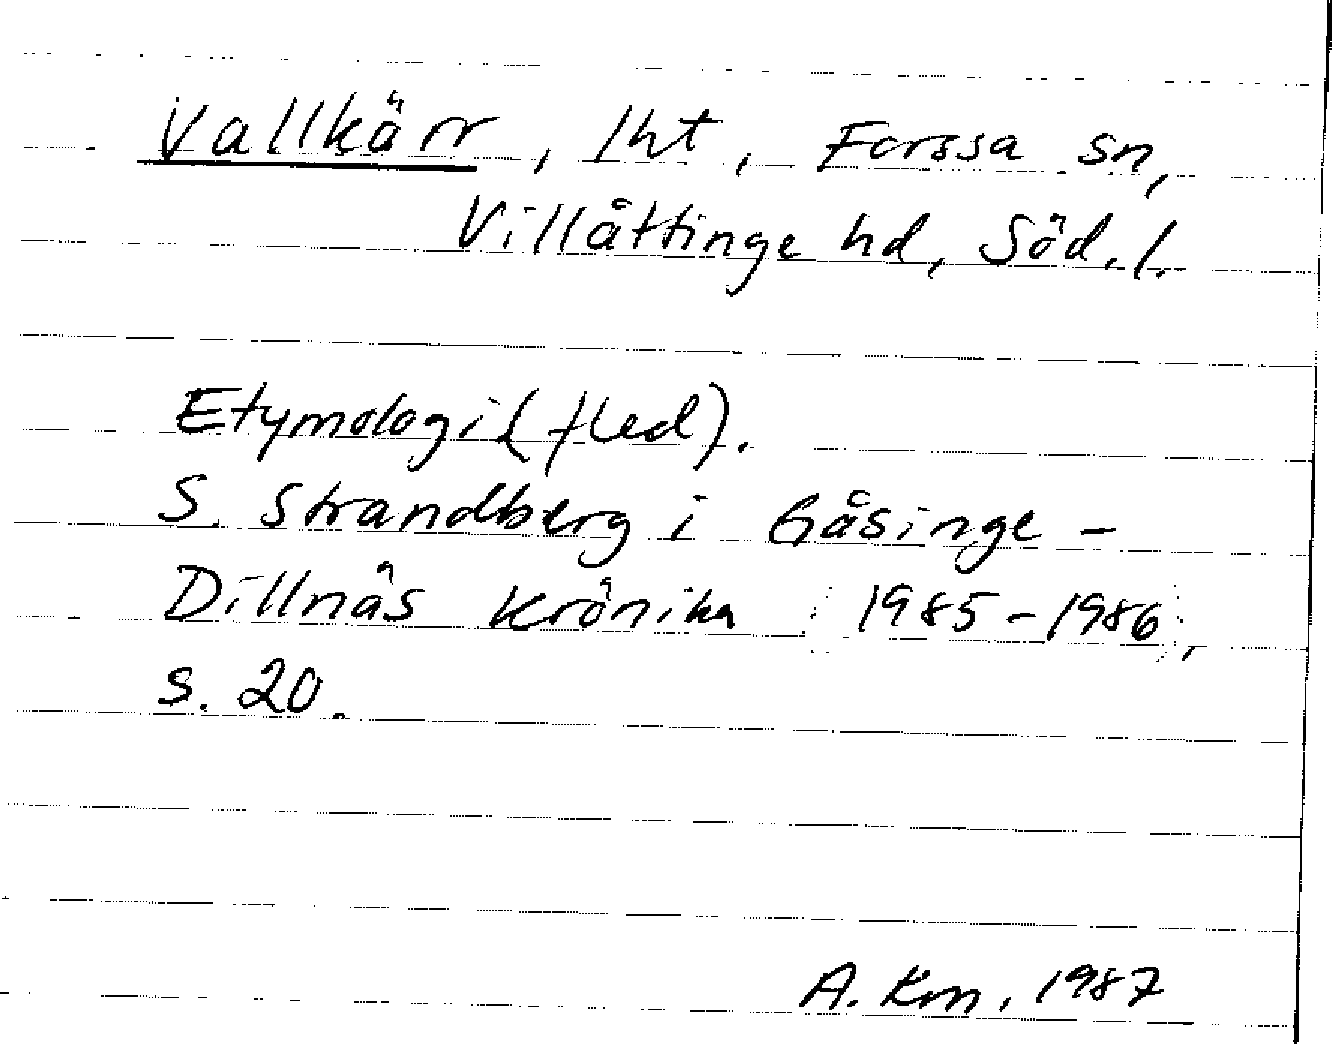 Vallkärr, lht, Forssa sn,
Villåttinge hd, Söd.l.
Etymologi (fled).
S. Strandberg i Gåsinge-
Dillnäs krönika 1985-1986,
s. 20.
A. Km, 1987